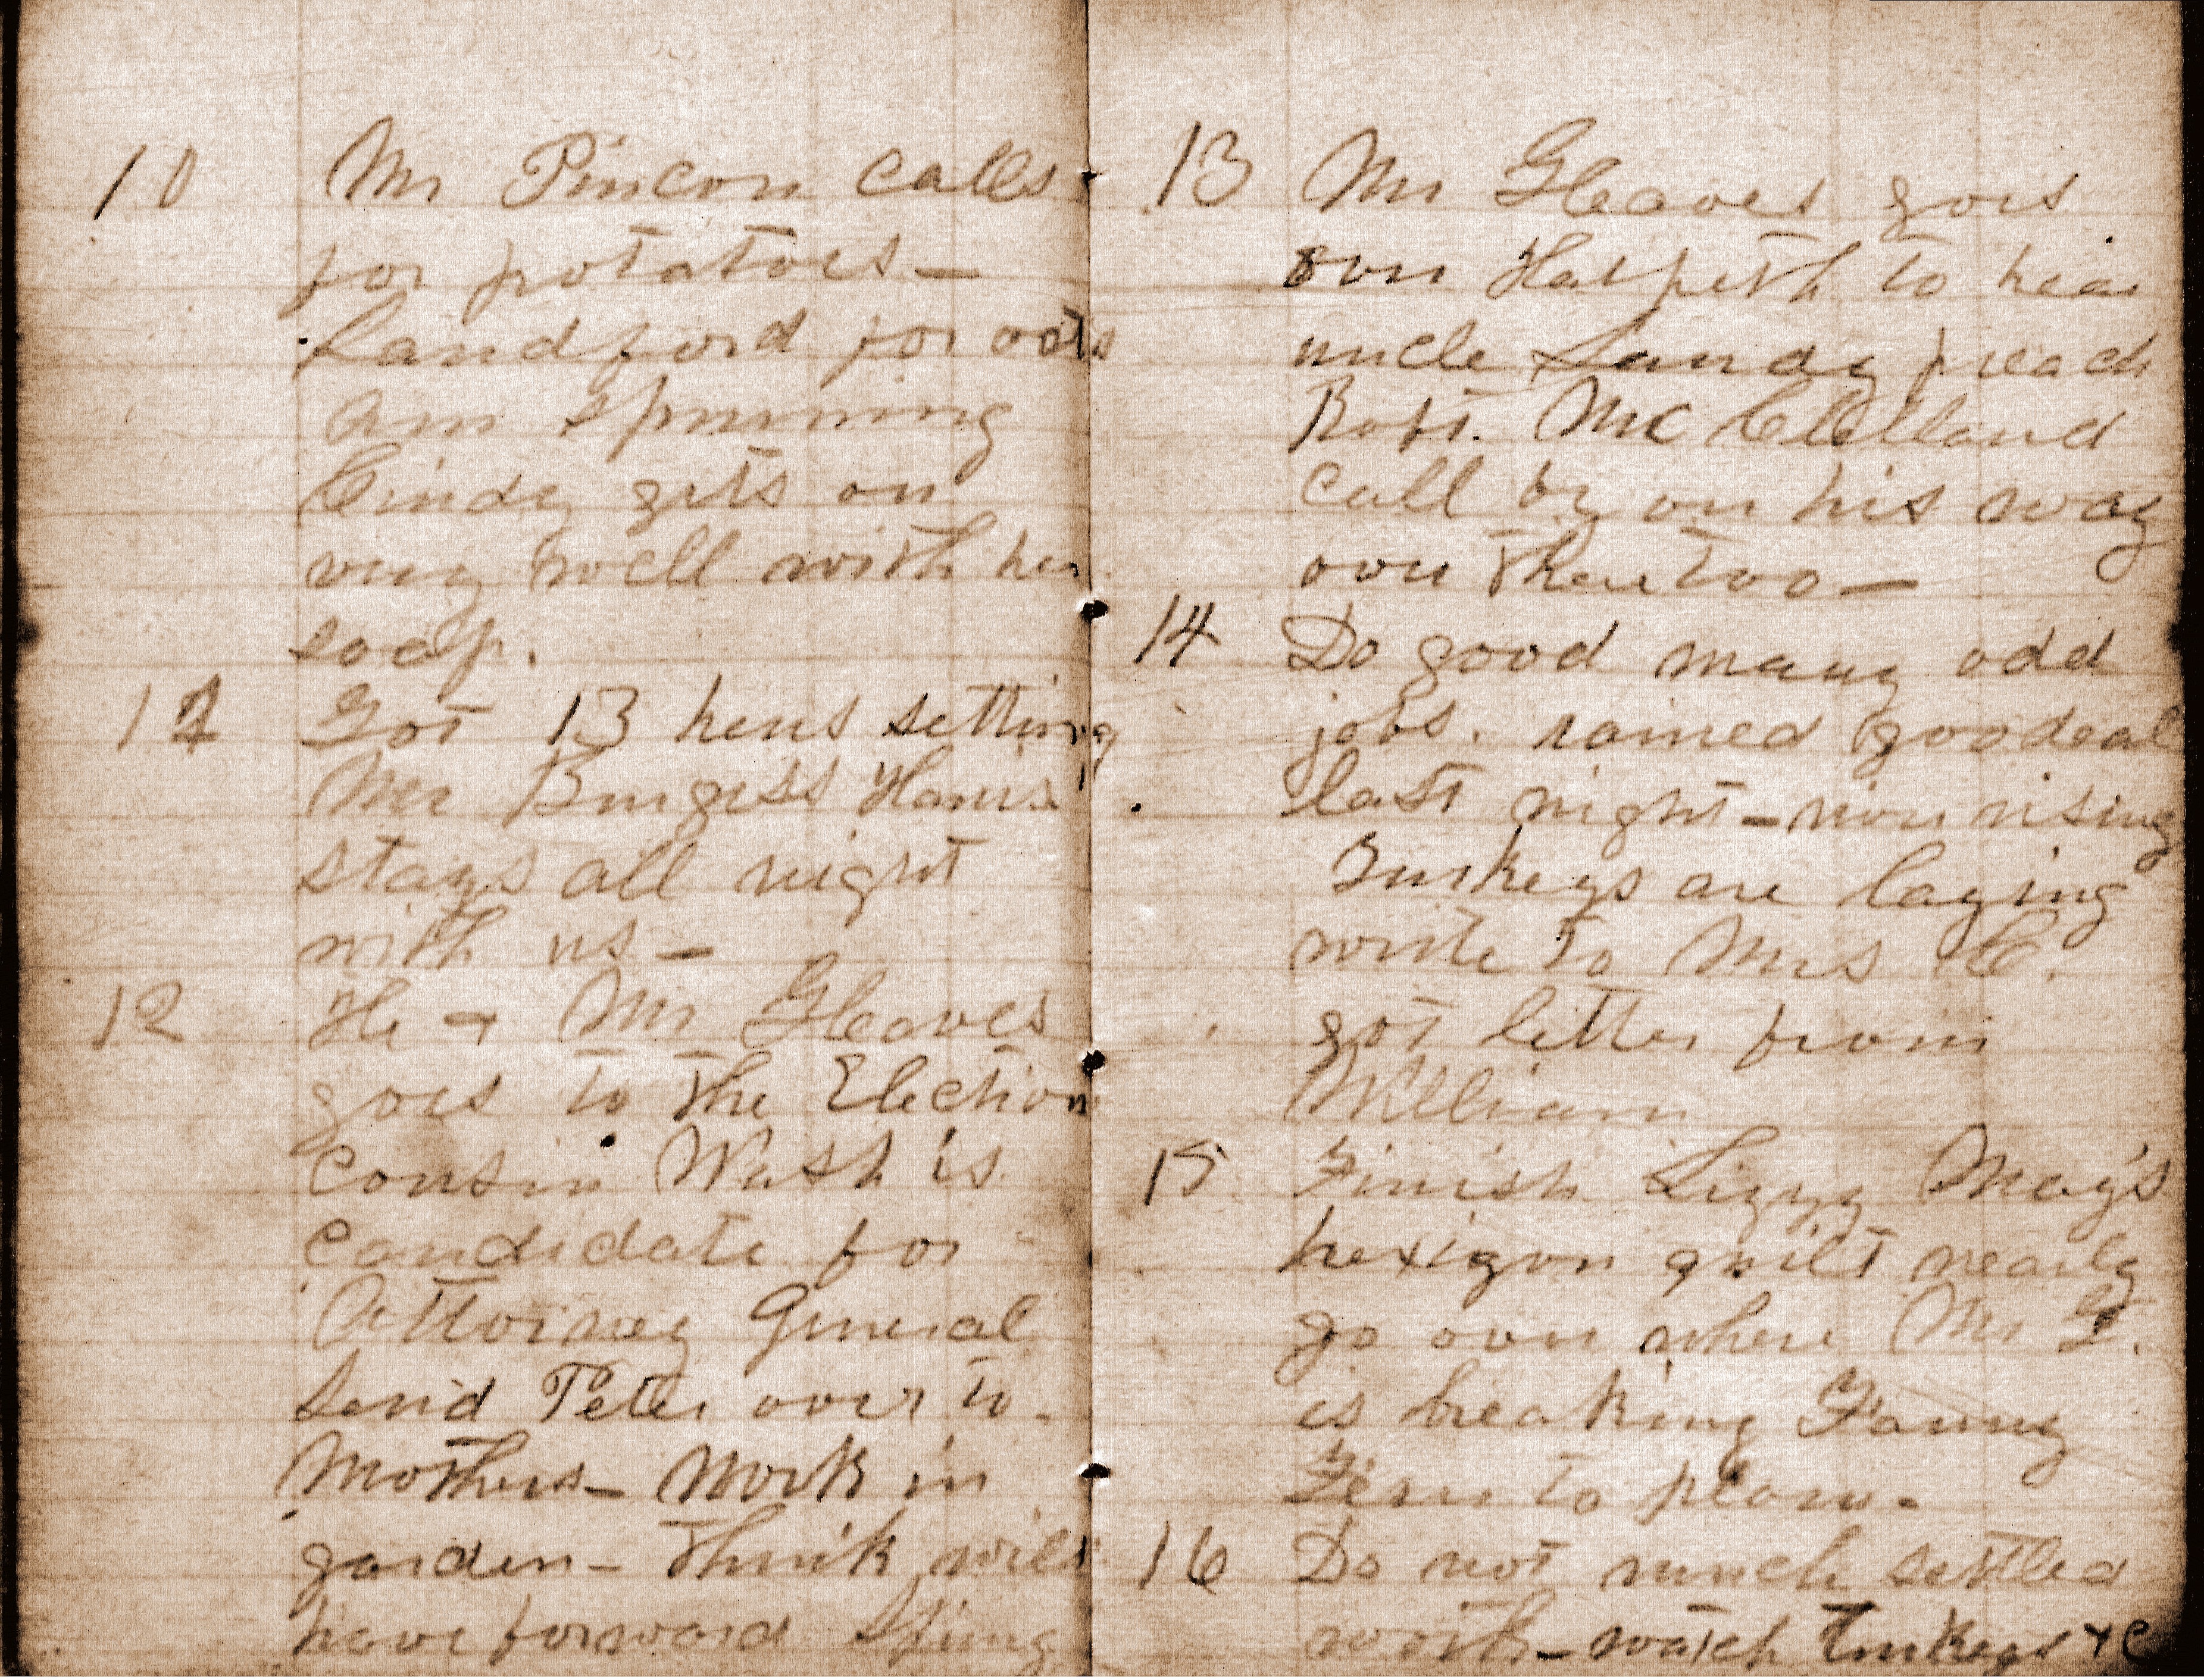 10 Mr Pincon calls
for potatoes—
Landford for oats
am spinning
Cindy gets on
very well with her
soap.
11 Got 13 hens setting
Mr Burgess Harris
stays all night
with us—
12 He + Mr Gleaves
goes to the Election
Cousin Wash is
candidate for
Attorney General
Send Peter over to
Mothers— Work in
garden— think will
have forward Spring
13 Mr Gleaves goes
over Harpeth to hear
uncle Sandy preach
Robt. McClelland
call by on his way
over there too—
14 Do good many odd
jobs. rained goodeal
last night— river rising
Turkeys are laying
write to Mrs C.
got letter from
William
15 Finish Lizzy May's
hexigon quilt nearly
go over where Mr G.
is breaking Fanny
Fern to plow.
16 Do not much settled
work— watch turkeys +c